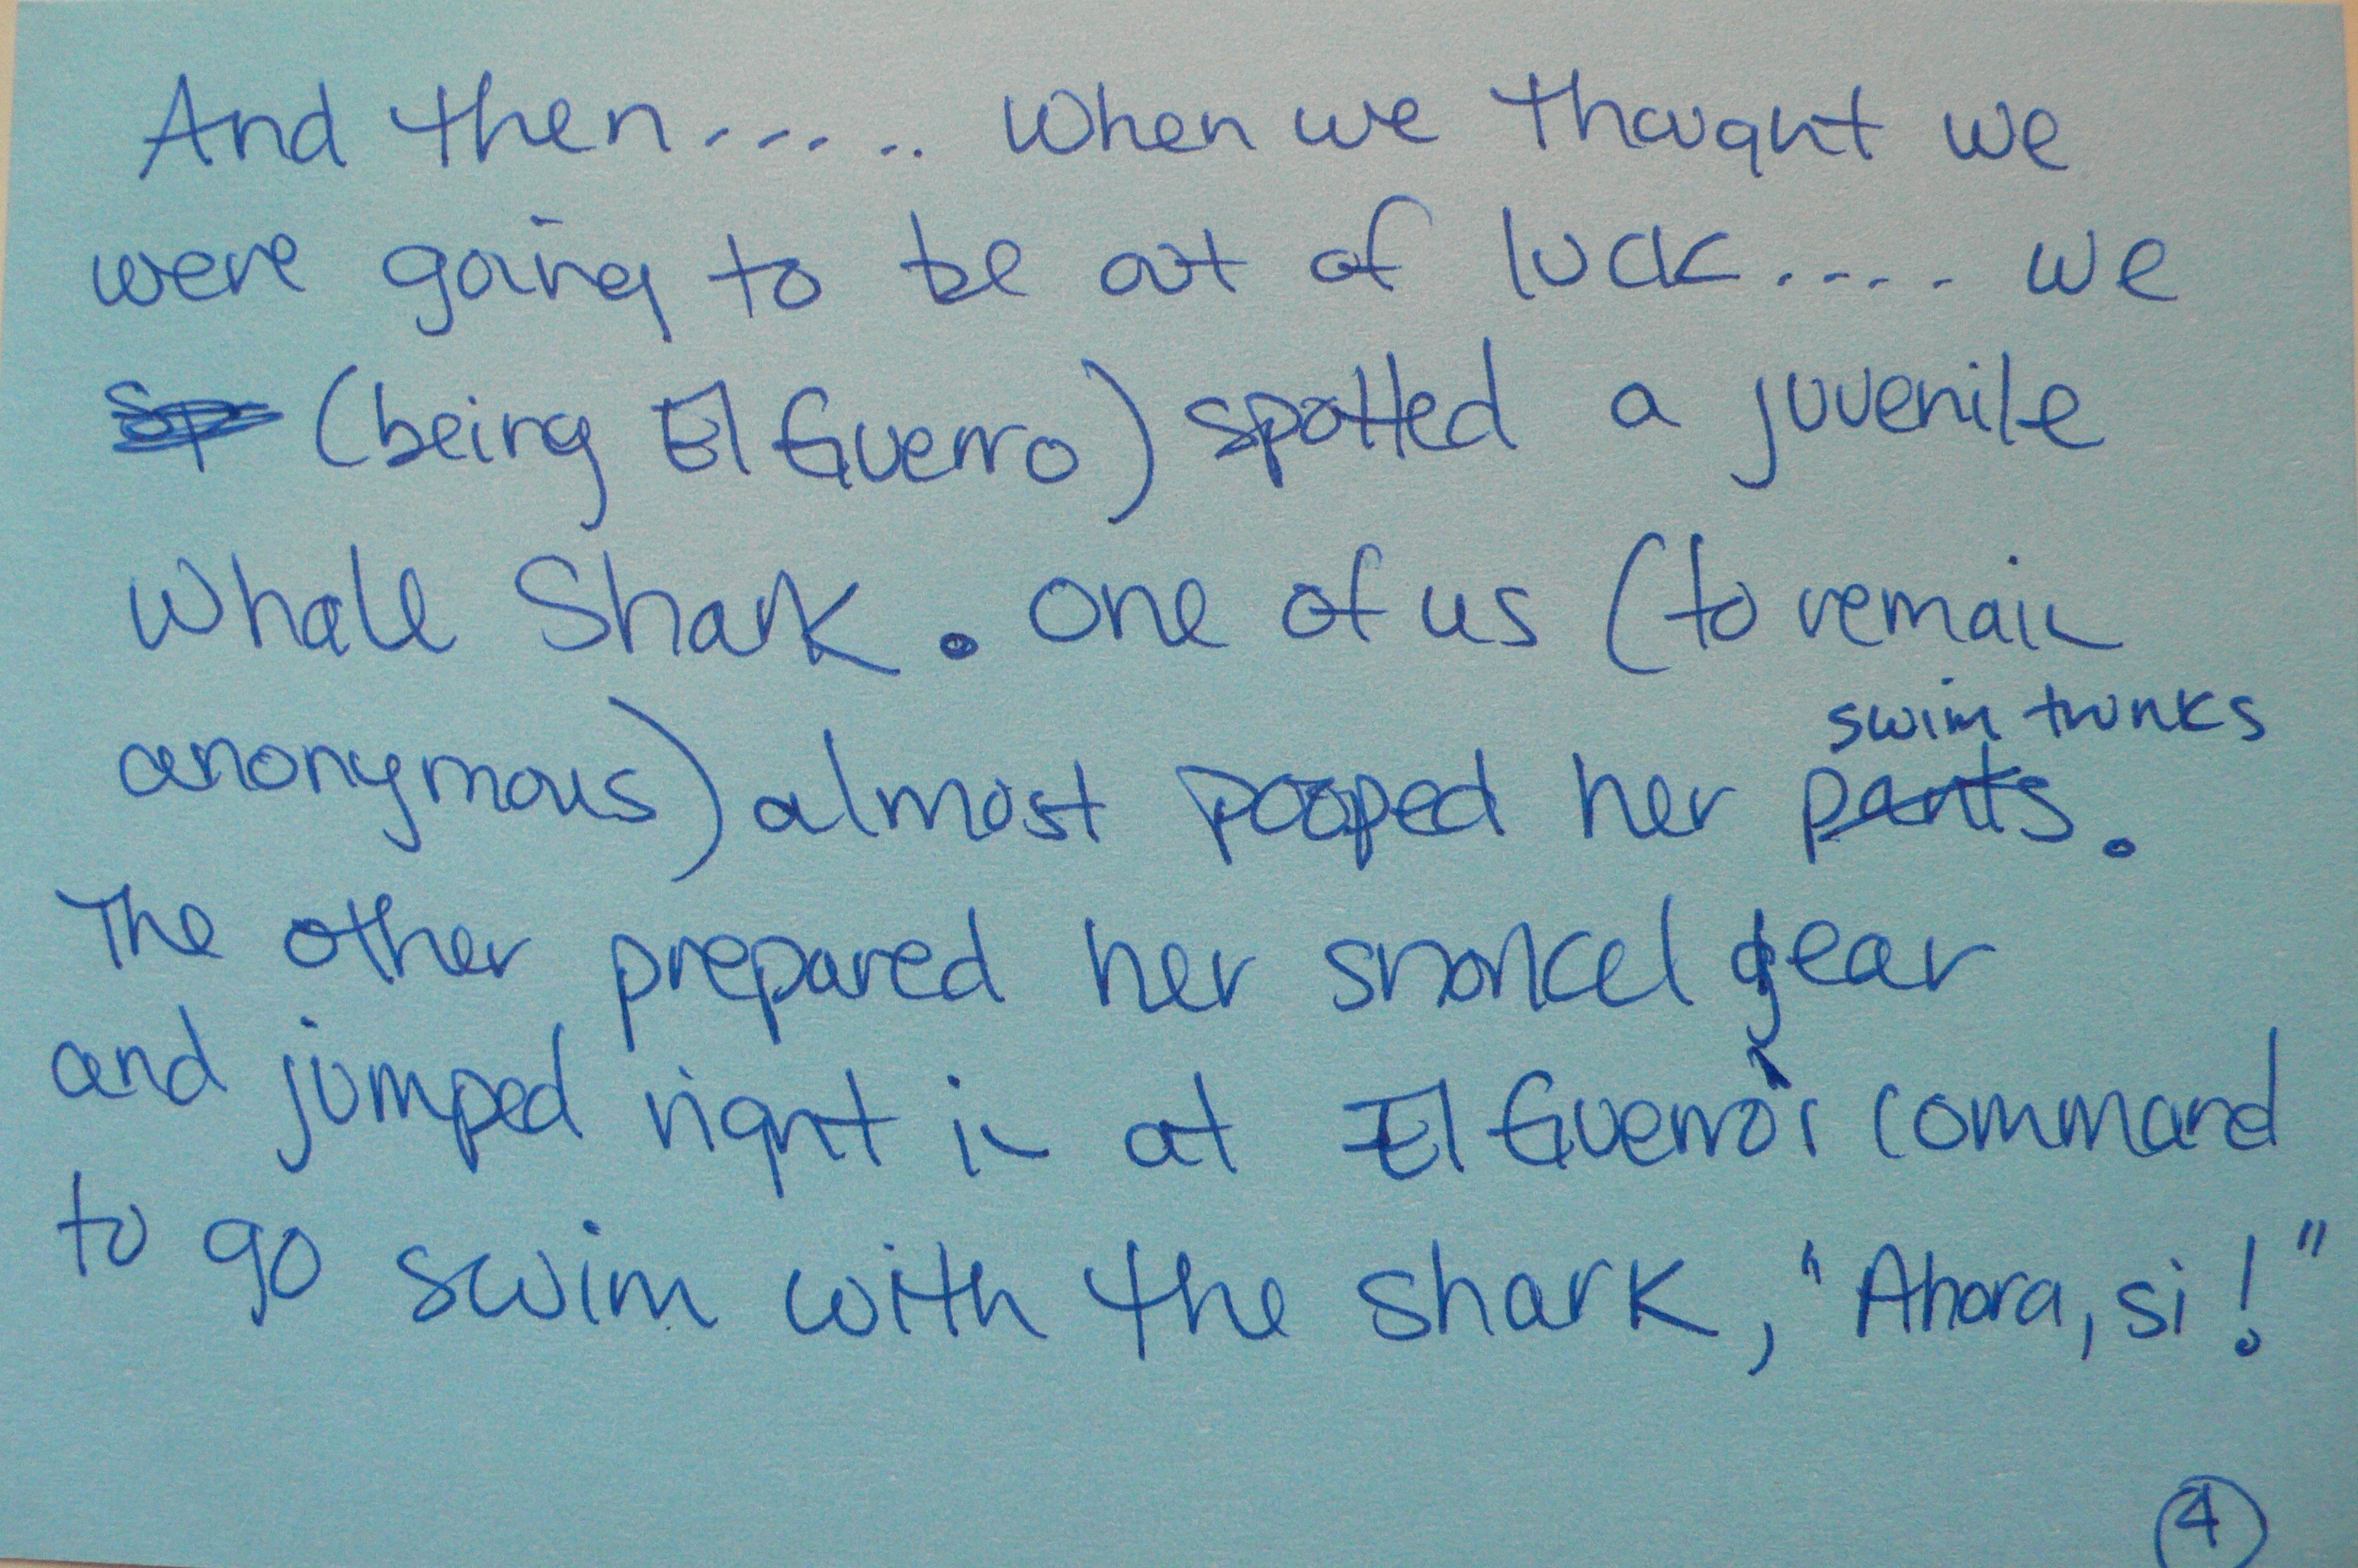 And then...... When we thought we
were going to be out of luck.... we
sp (being El Guerro) spotted a juvenile
Whale Shark. One of us (to remain
swim trunks
anonymous) almost pooped her pants.
The other prepared her snorkel gear
and jumped right in at El Guerro's command
to go swim with the shark, "Ahora, si!"
4